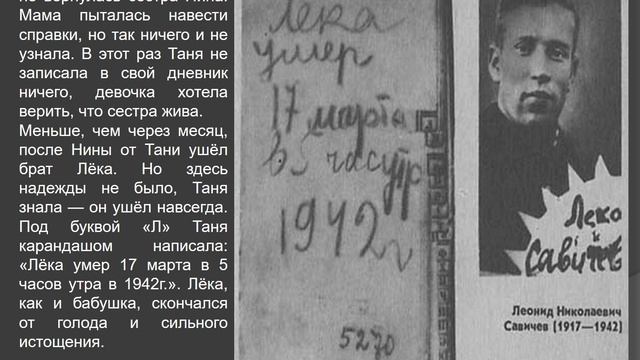 не вернулась сестра Нина.
Мама пыталась навести
справки, но так ничего и не
узнала. В этот раз Таня не
записала в свой дневник
ничего, девочка хотела
верить, что сестра жива.
Меньше, чем через месяц,
после Нины от Тани ушёл
брат Лёка. Но здесь
надежды не было, Таня
знала — он ушёл навсегда.
Под буквой «Л» Таня
карандашом написала:
«Лёка умер 17 марта в 5
часов утра в 1942г.». Лёка,
как и бабушка, скончался
от голода и сильного
истощения.
Лека
умер
17 марта
в 5 час утр
1942 г
5270
Лека
Савичев
Леонид Николаевич
Савичев (1917—1942)